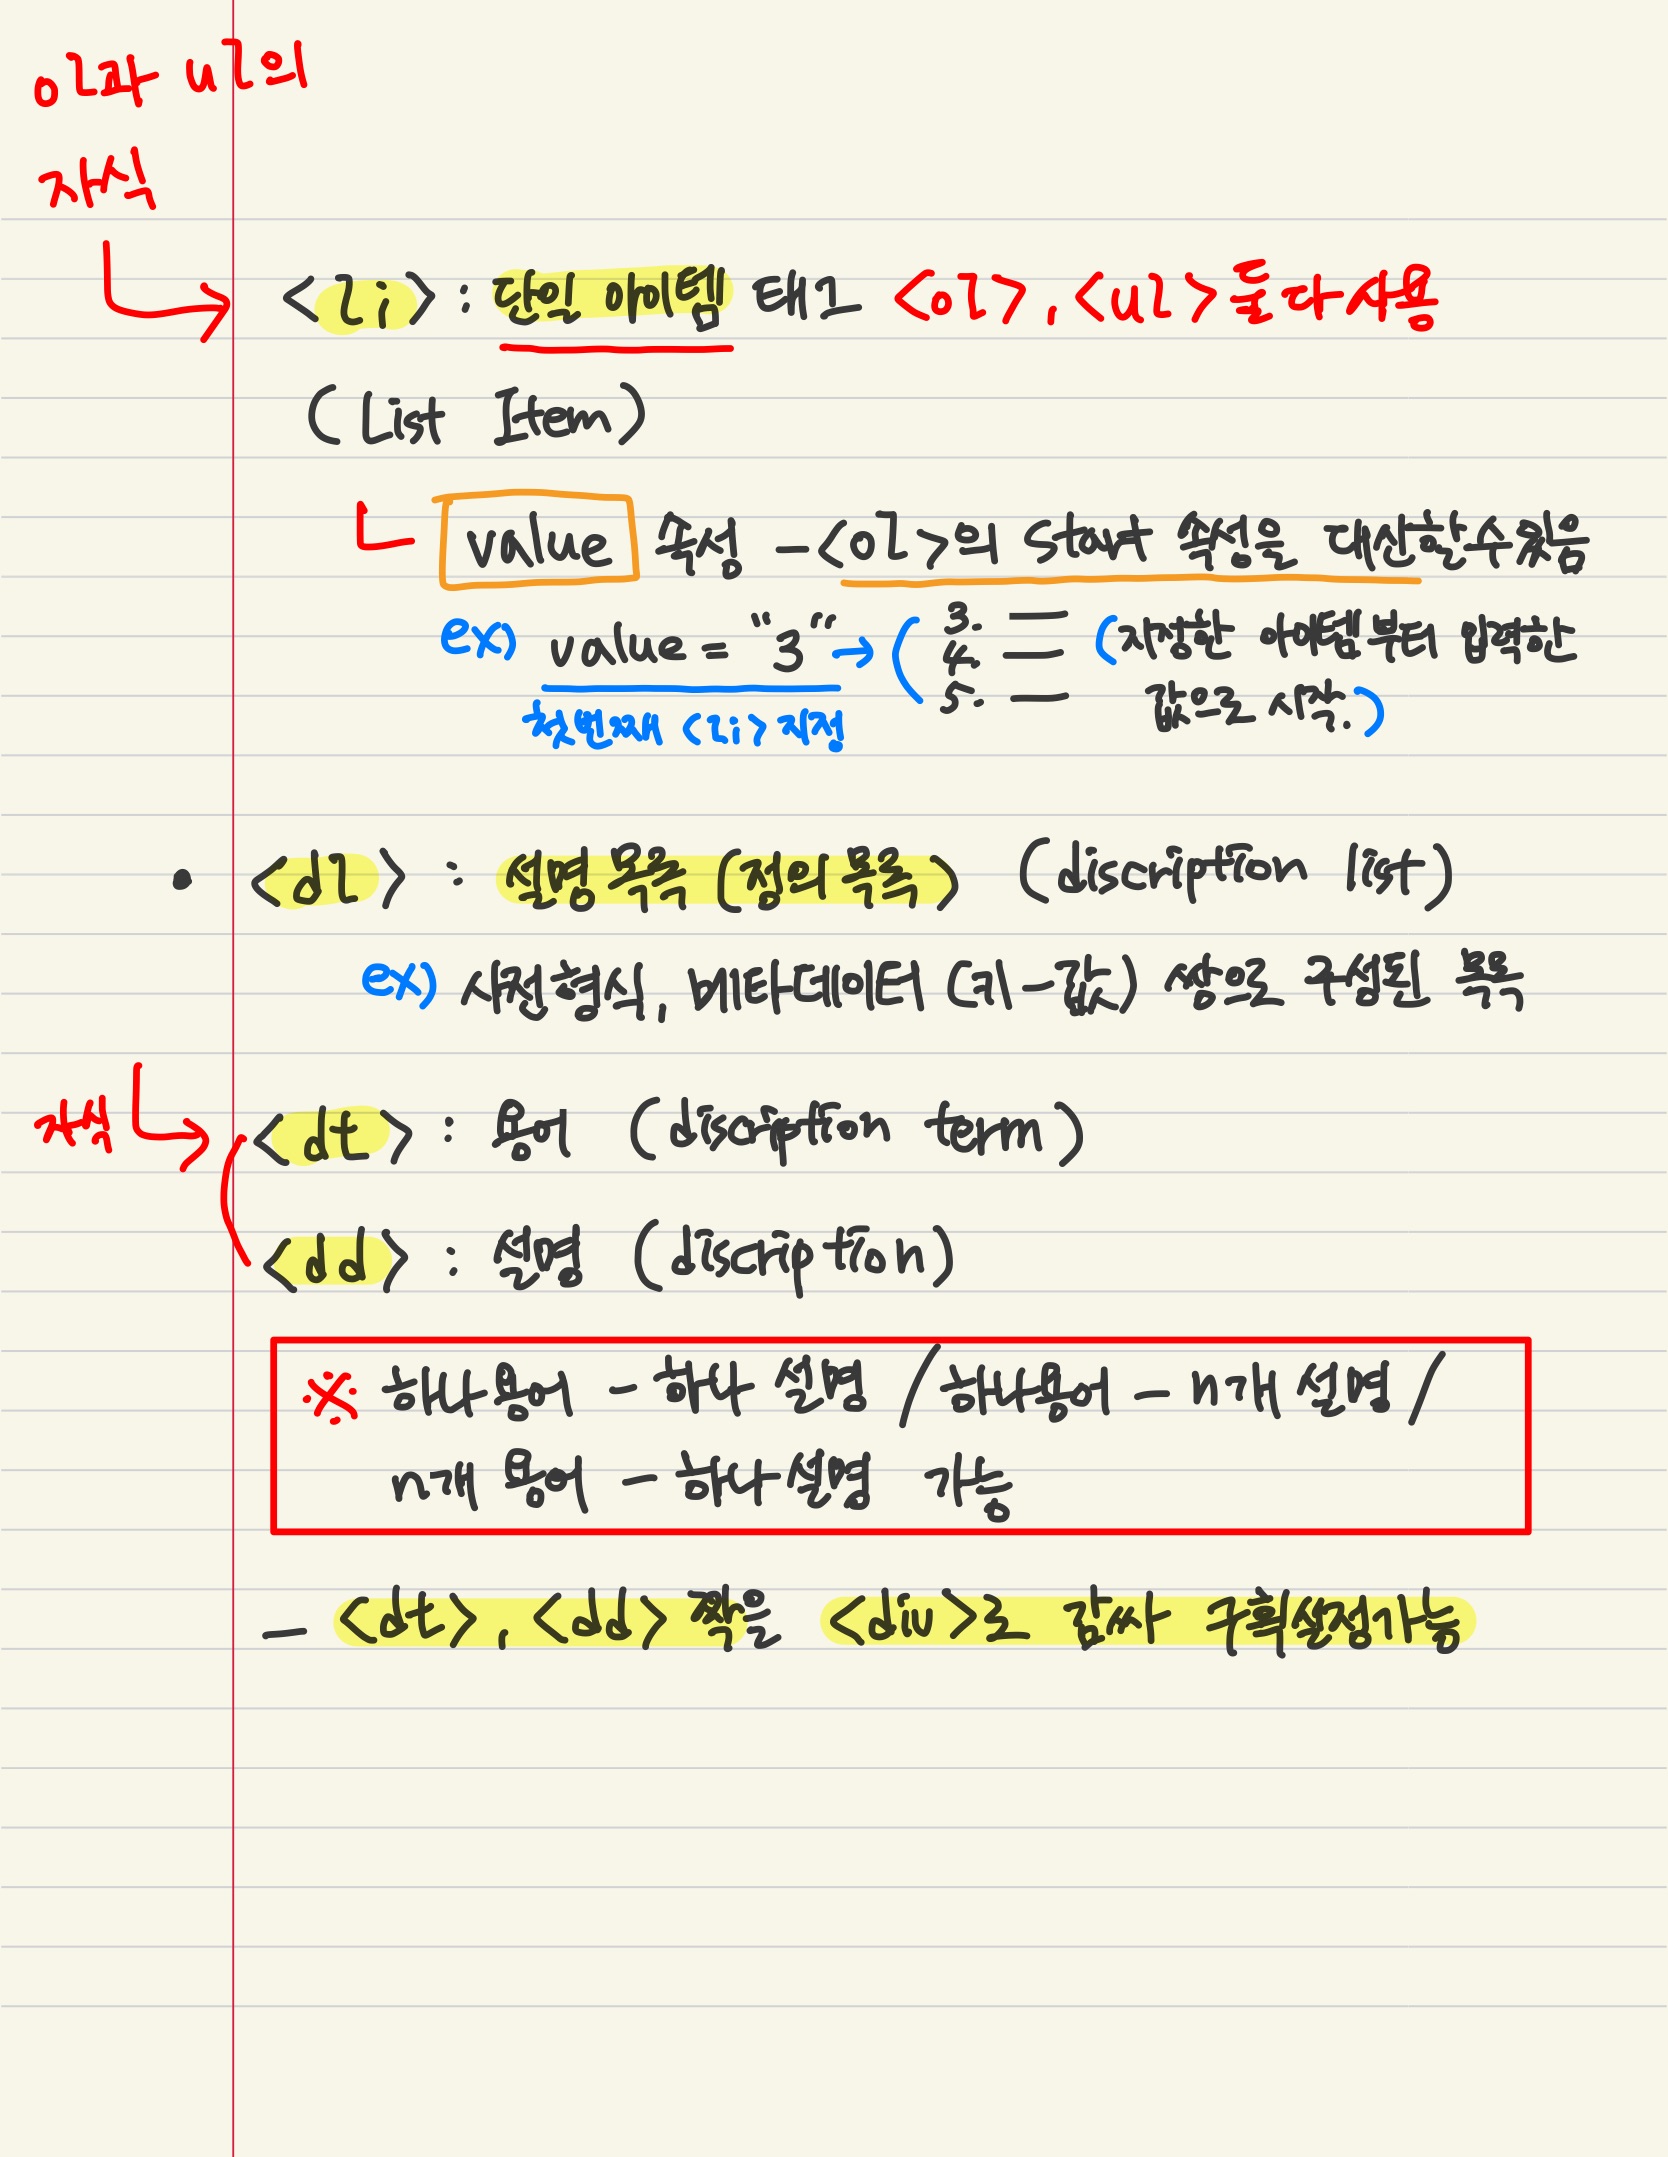 ol과 ul의
자식
<li> : 단일 아이템 태그 <ol>, <ul> 둘 다 사용
(List Item)
value 속성 - <ol>의 start 속성을 대신할 수 있음
ex) value = "3" → ( 3. — (지정한 아이템부터 입력한
4. —
5. — 값으로 시작.)
첫번째 <li> 지정
• <dl> : 설명 목록 (정의 목록) (discription list)
ex) 사전형식, 메타데이터 (키-값) 쌍으로 구성된 목록
자식
<dt> : 용어 (discription term)
<dd> : 설명 (discription)
※ 하나용어 - 하나 설명 / 하나용어 - n개 설명 /
n개 용어 - 하나 설명 가능
- <dt>, <dd> 짝을 <div>로 감싸 구획설정가능